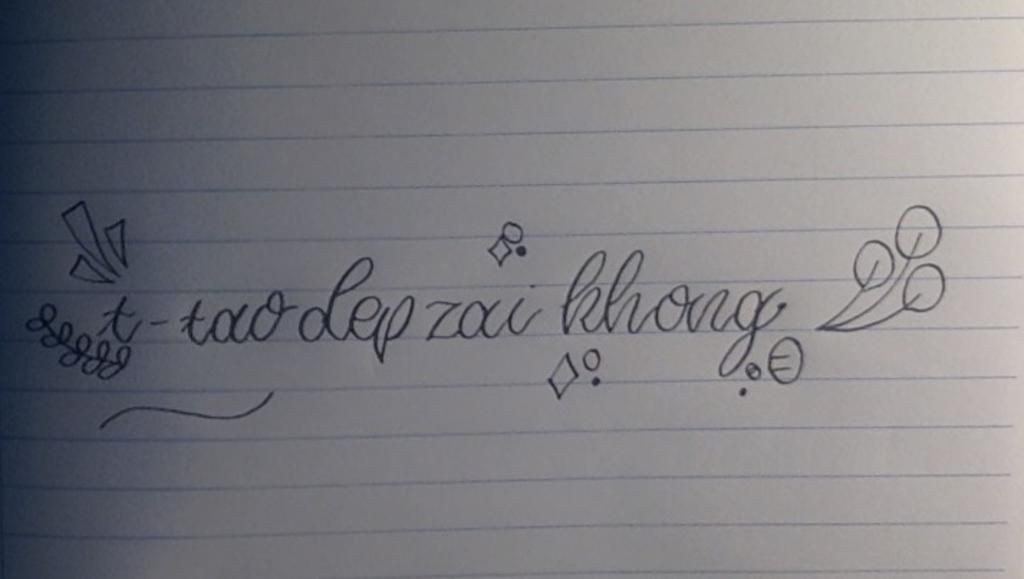 t-tao dep zai khong